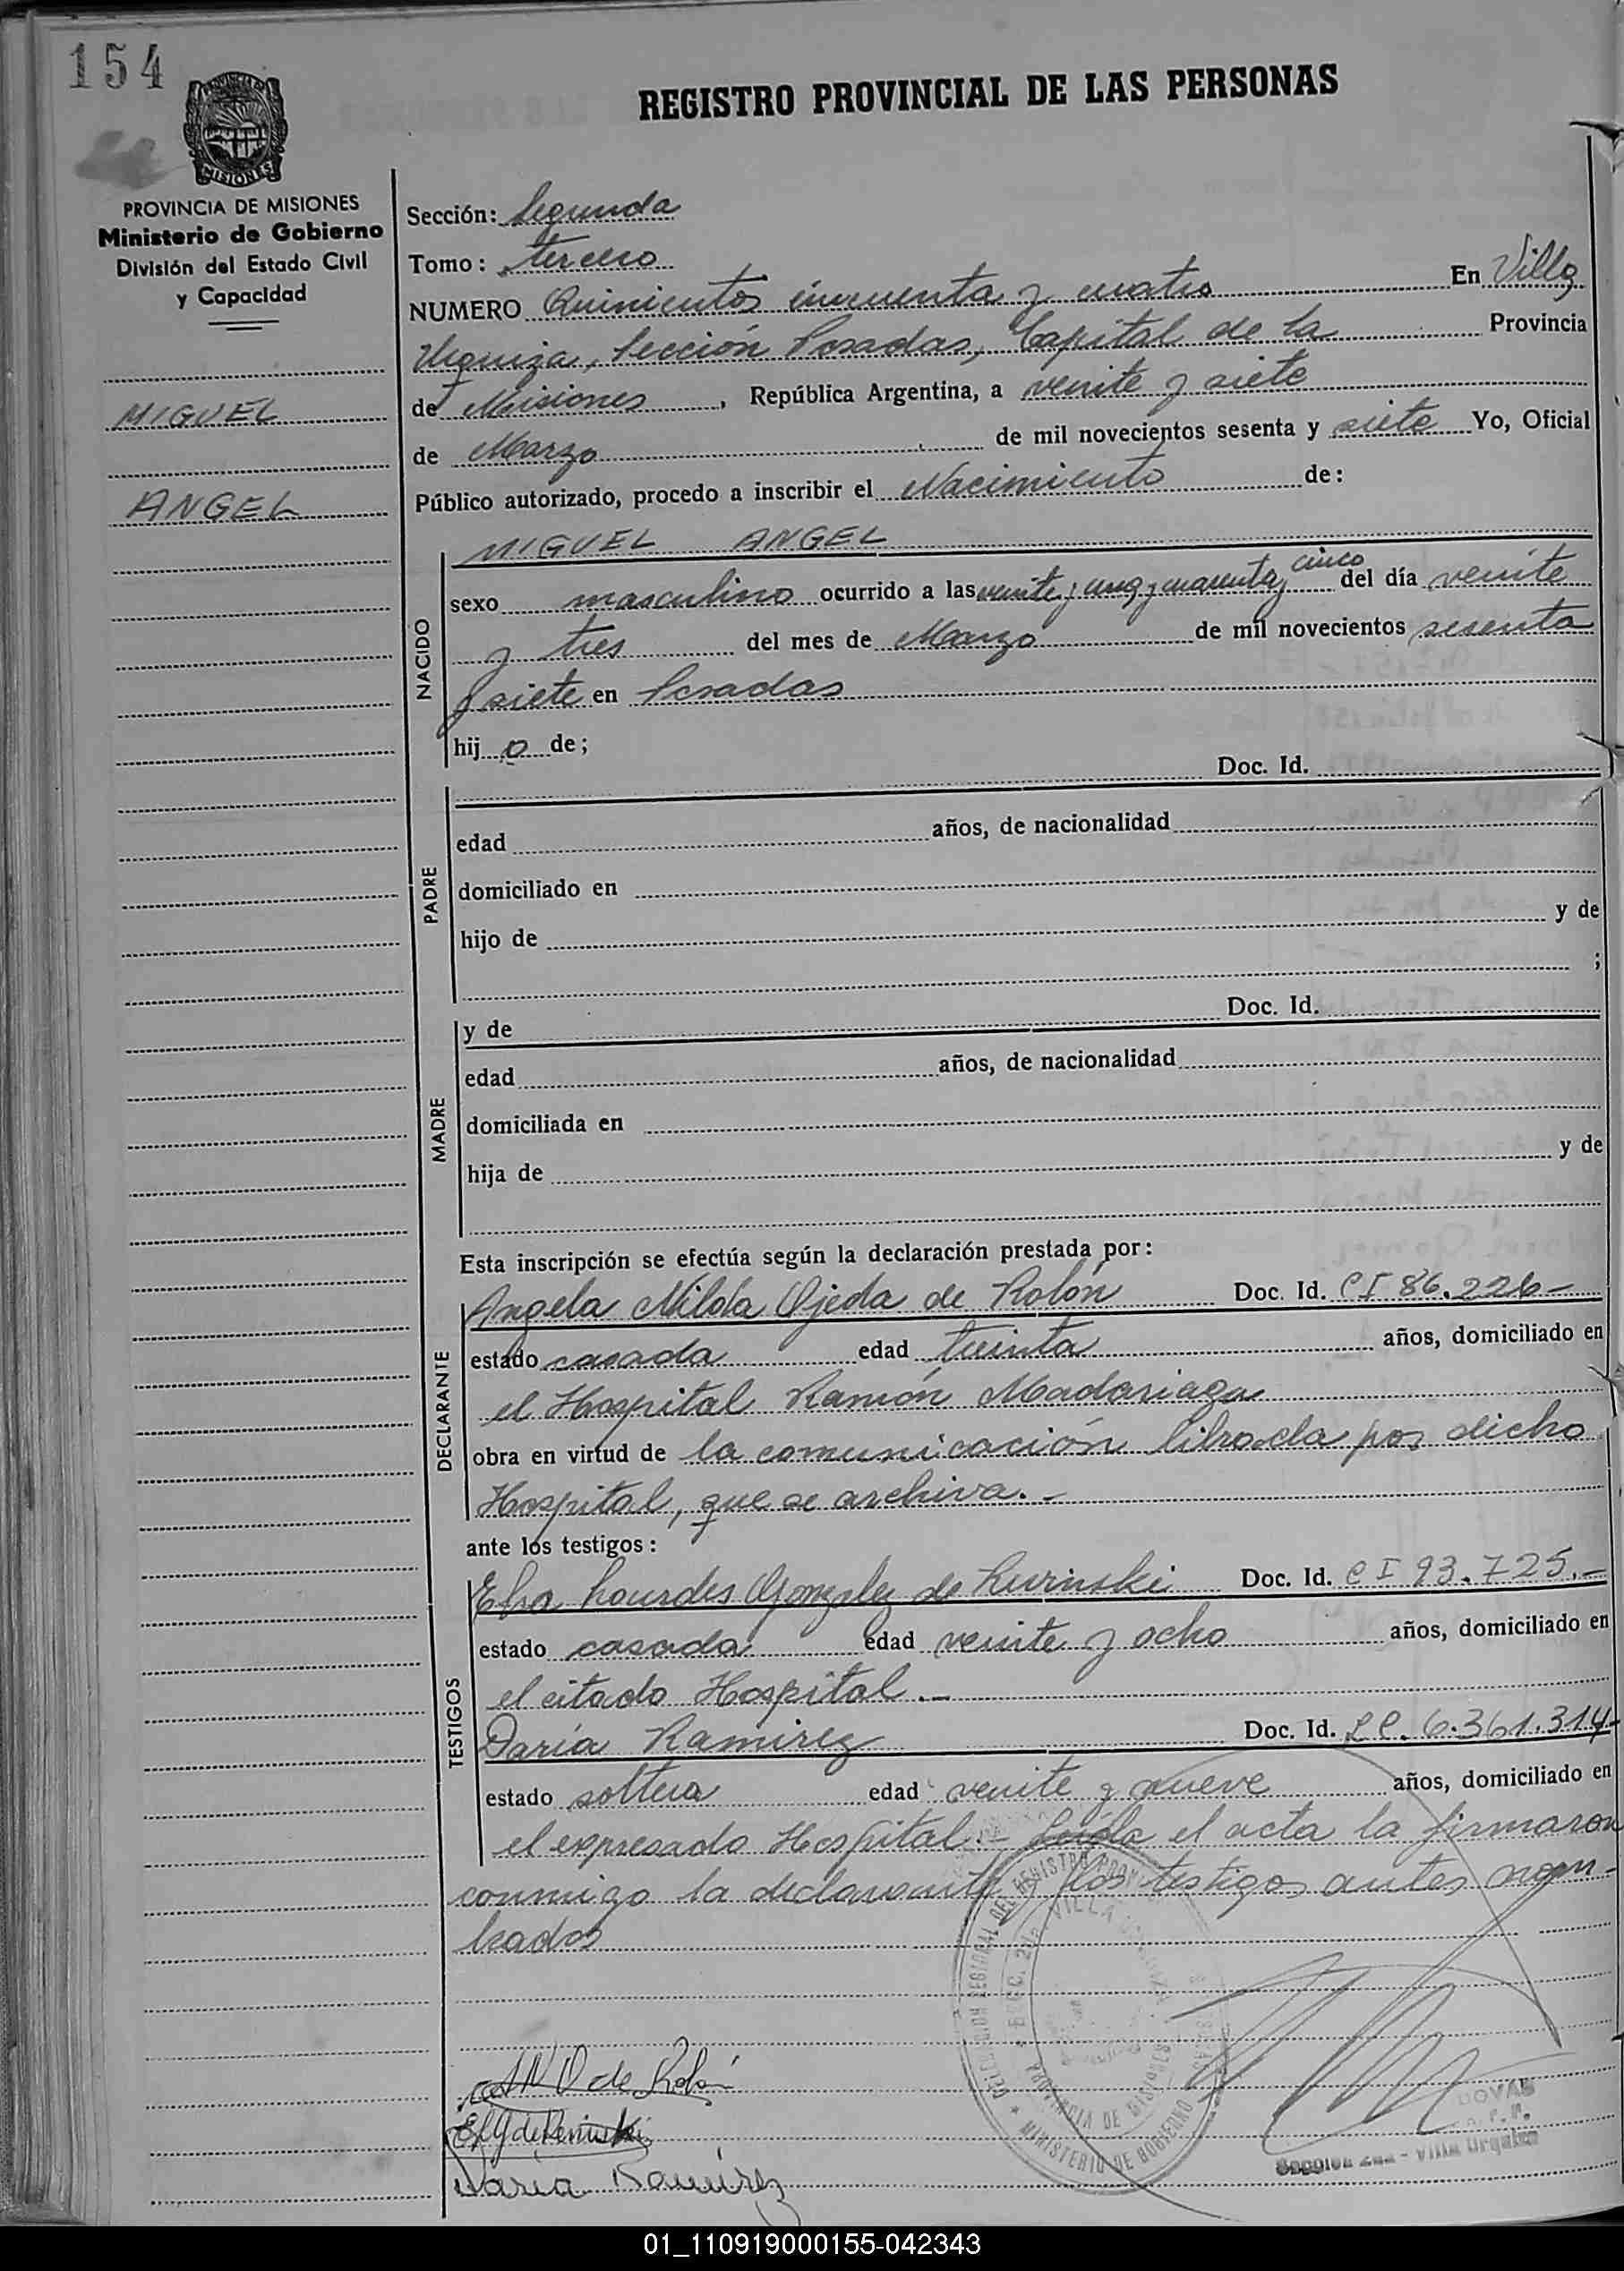 154
REGISTRO PROVINCIAL DE LAS PERSONAS
MISIONES
PROVINCIA DE MISIONES
Ministerio de Gobierno
División del Estado Civil
y Capacidad
MIGUEL
ANGEL
Sección: Segunda
Tomo: tercero
NUMERO Quinientos cincuenta y cuatro En Villa
Urquiza, Sección Posadas, Capital de la Provincia
de Misiones, República Argentina, a veinte y siete
de Marzo de mil novecientos sesenta y siete Yo, Oficial
Público autorizado, procedo a inscribir el Nacimiento de:
MIGUEL ANGEL
NACIDO
sexo masculino ocurrido a las veinte y una y cuarenta y cinco del día veinte
y tres del mes de Marzo de mil novecientos sesenta
y siete en Posadas
hij o de;
Doc. Id.
PADRE
edad años, de nacionalidad
domiciliado en
hijo de y de
;
y de Doc. Id.
MADRE
edad años, de nacionalidad
domiciliada en
hija de y de
Esta inscripción se efectúa según la declaración prestada por:
DECLARANTE
Angela Nilda Ojeda de Rolón Doc. Id. CI 86.226-
estado casada edad treinta años, domiciliado en
el Hospital Ramón Madariaga
obra en virtud de la comunicación librada por dicho
Hospital, que se archiva.-
ante los testigos:
TESTIGOS
Lourdes Gonzalez de Doc. Id. CI 93.725.-
estado casada edad veinte y ocho años, domiciliado en
el citado Hospital.-
Daría Ramirez Doc. Id. LC. 6.361.314-
estado soltera edad veinte y nueve años, domiciliado en
el expresado Hospital.- Leída el acta la firmaron
conmigo la declarante y los testigos antes nom-
brados
A N O de Rolón
Daria Ramírez
MINISTERIO DE GOBIERNO
PROVINCIA DE MISIONES
VILLA
Sección 2da - Villa Urquiza
01_110919000155-042343